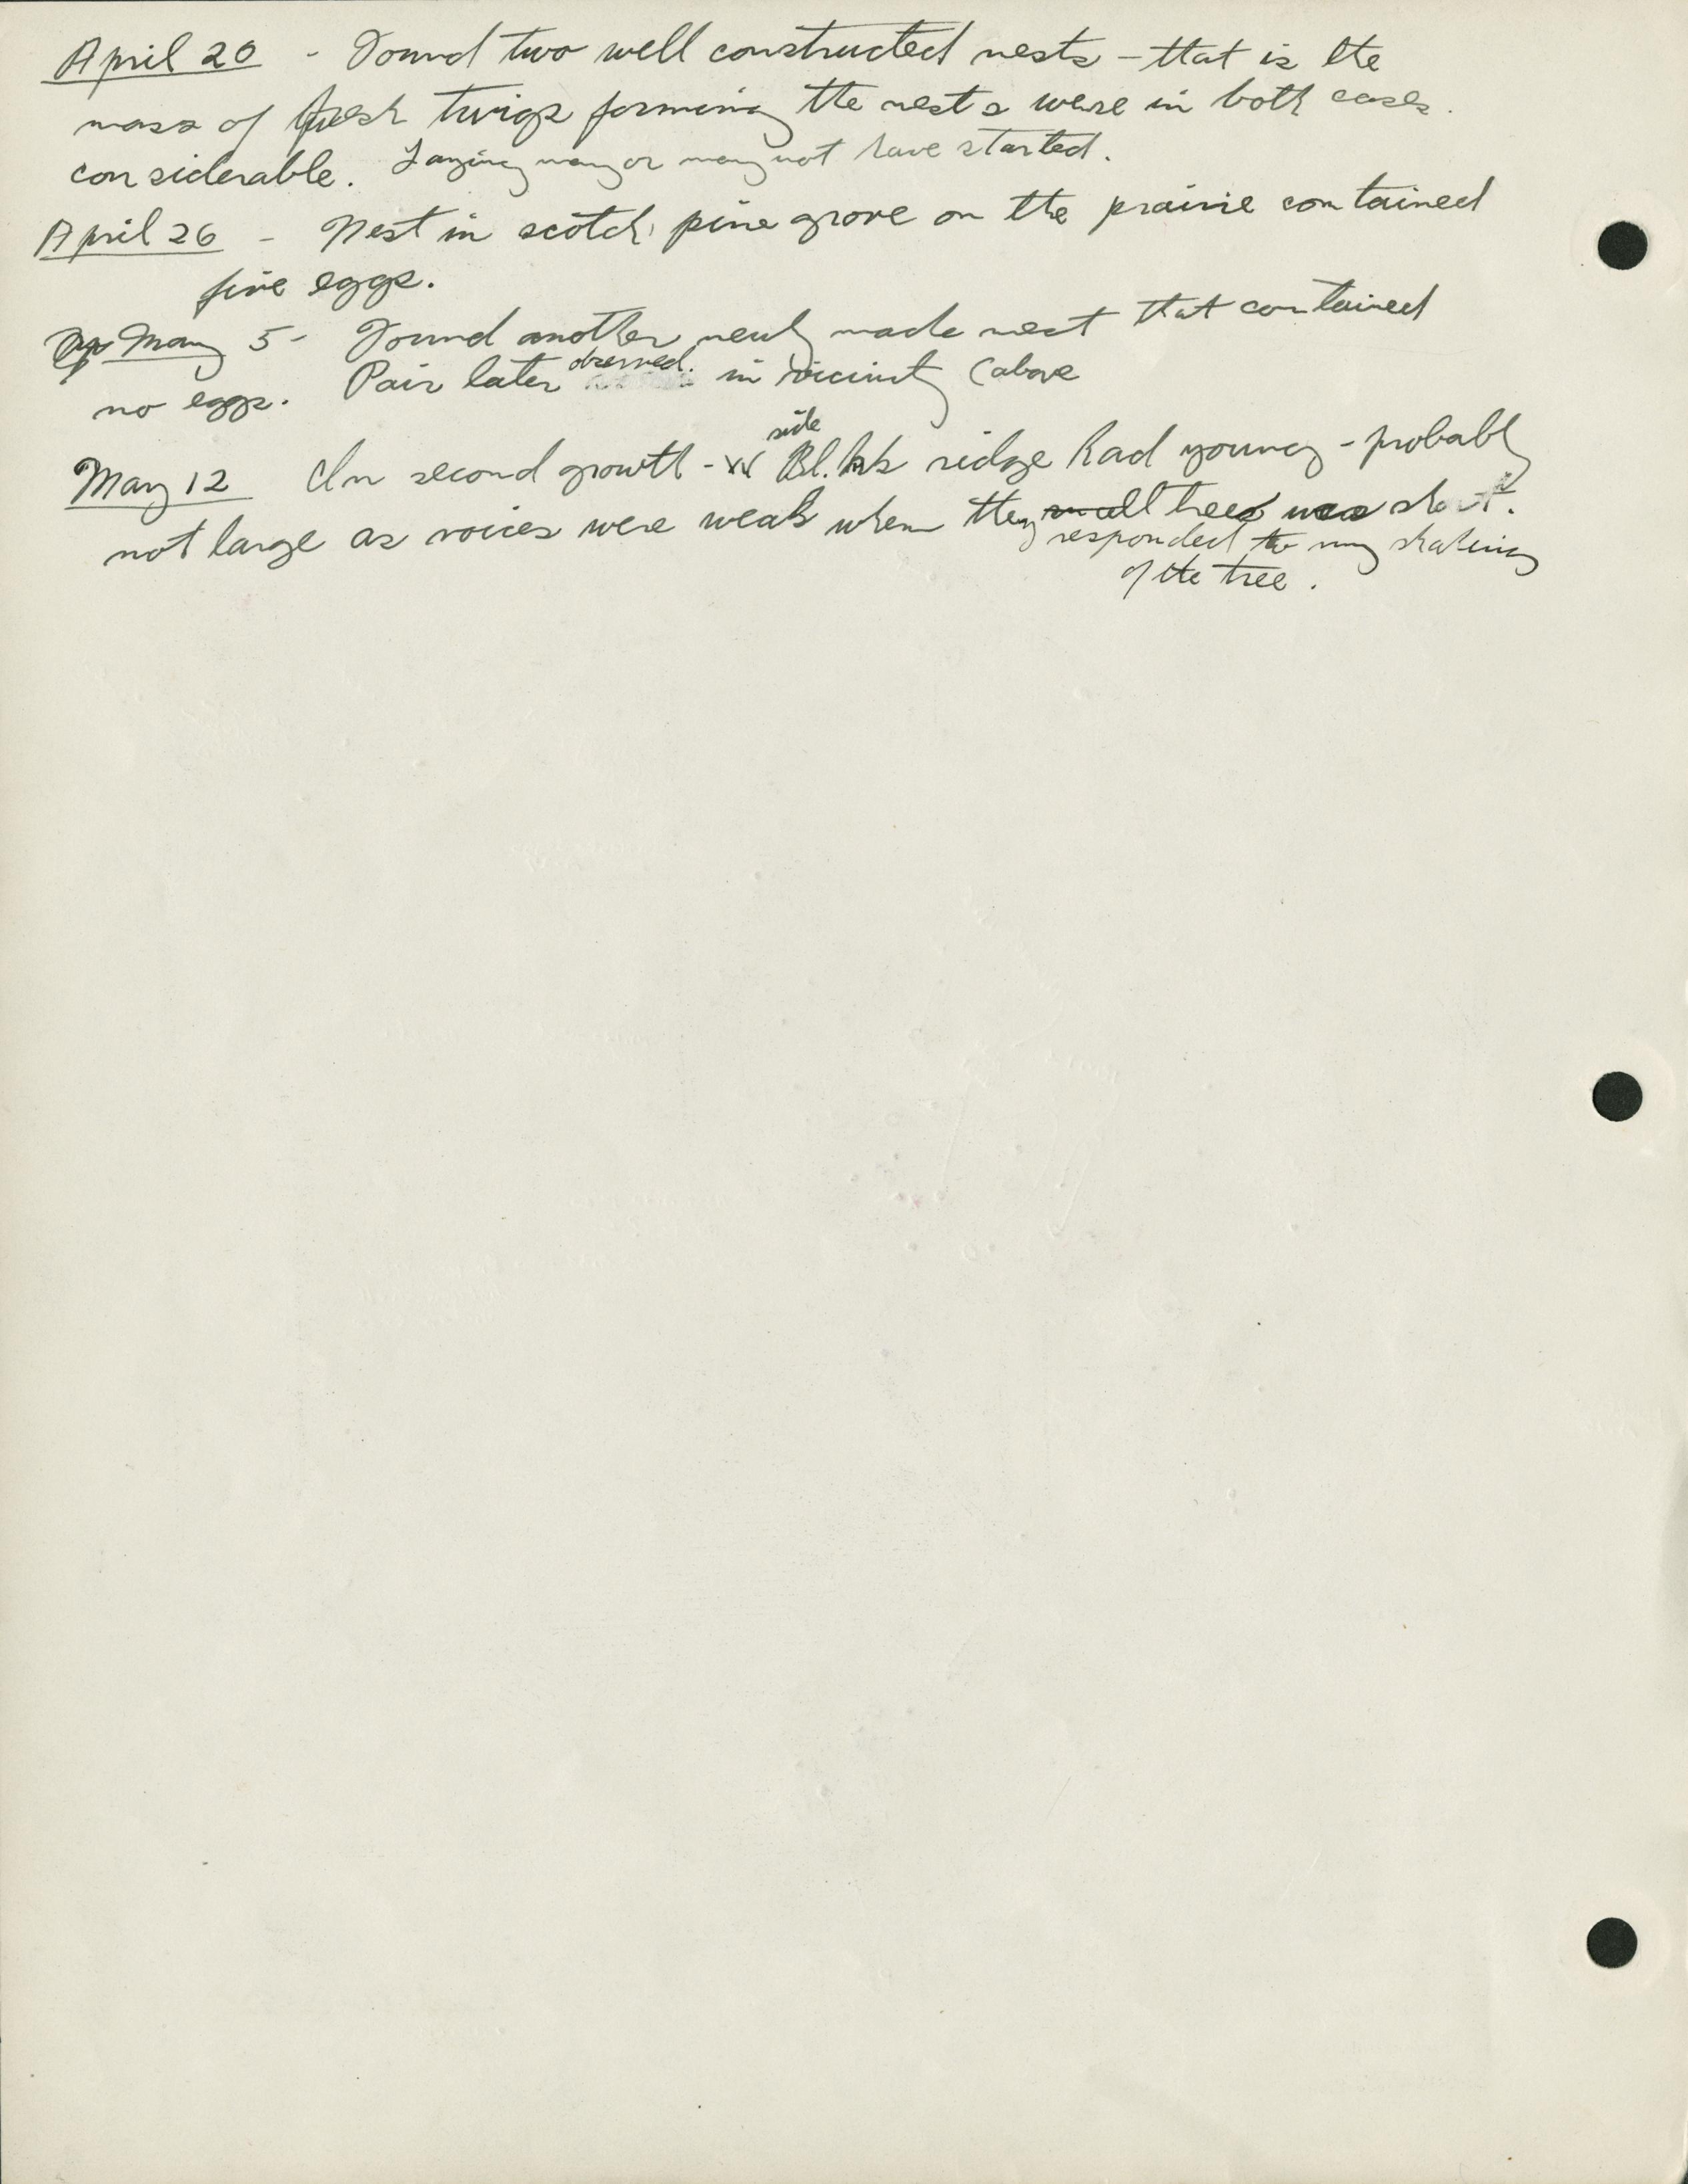 April 20 - Found two well constructed nests - that is the
mass of fresh twigs forming the nests were in both cases.
considerable. Laying may or may not have started.
April 26 - Nest in scotch pine grove on the prairie contained
five eggs.
Ap May 5 - Found another newly made nest that contained
no eggs. Pair later observed. in vicinity (above
May 12 In second growth - W side Bl. ridge had young - probably
not large as voices were weak when they small trees was short.
responded to my shaking
of the tree.